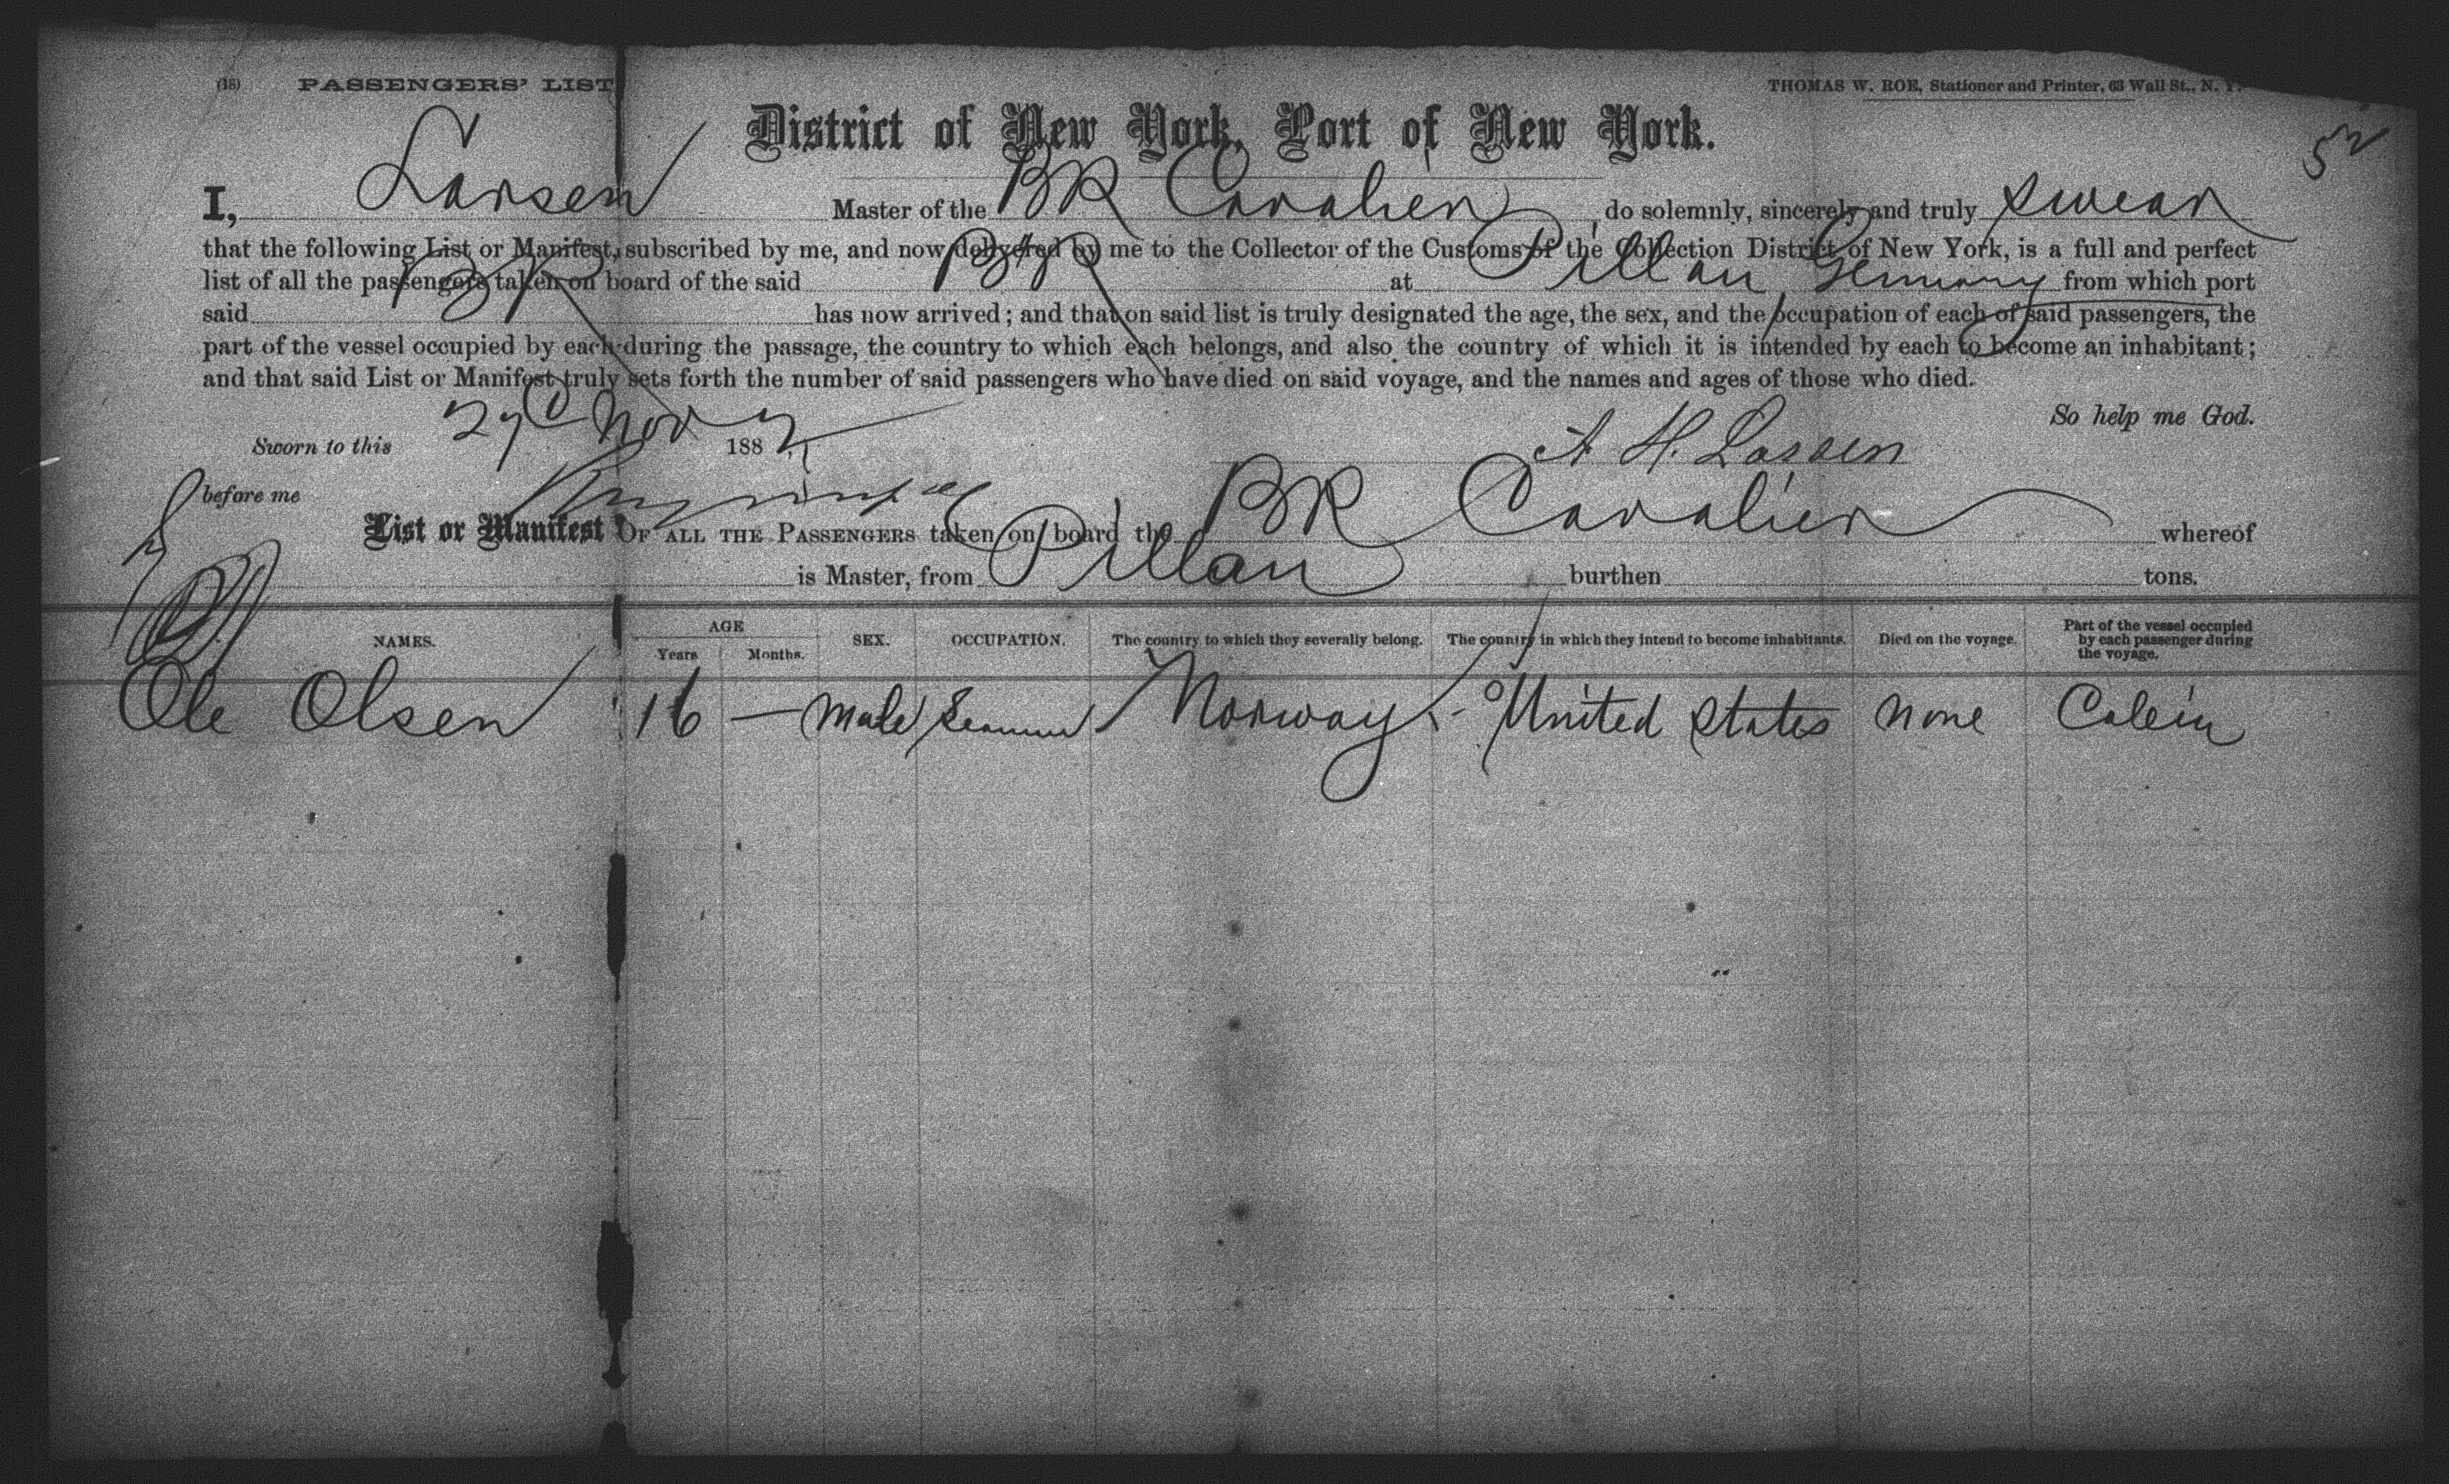 (18) PASSENGERS' LIST
THOMAS W. ROE, Stationer and Printer, 63 Wall St., N. Y.
52
District of New York, Port of New York.
I, Larsen Master of the BK Cavalier do solemnly, sincerely and truly swear
that the following List or Manifest, subscribed by me, and now delivered by me to the Collector of the Customs of the Collection District of New York, is a full and perfect
list of all the passengers taken on board of the said BK at Pillau Germany from which port
said BK has now arrived; and that on said list is truly designated the age, the sex, and the occupation of each of said passengers, the
part of the vessel occupied by each during the passage, the country to which each belongs, and also the country of which it is intended by each to become an inhabitant;
and that said List or Manifest truly sets forth the number of said passengers who have died on said voyage, and the names and ages of those who died.
So help me God.
Sworn to this 29 Nov 188
A H. Lassen
before me
List or Manifest OF ALL THE PASSENGERS taken on board the BK Cavalier whereof
is Master, from Pillau burthen tons.
NAMES. AGE Years Months. SEX. OCCUPATION. The country to which they severally belong. The country in which they intend to become inhabitants. Died on the voyage. Part of the vessel occupied by each passenger during the voyage.
Ole Olsen 16 — Male Seaman Norway United States None Cabin